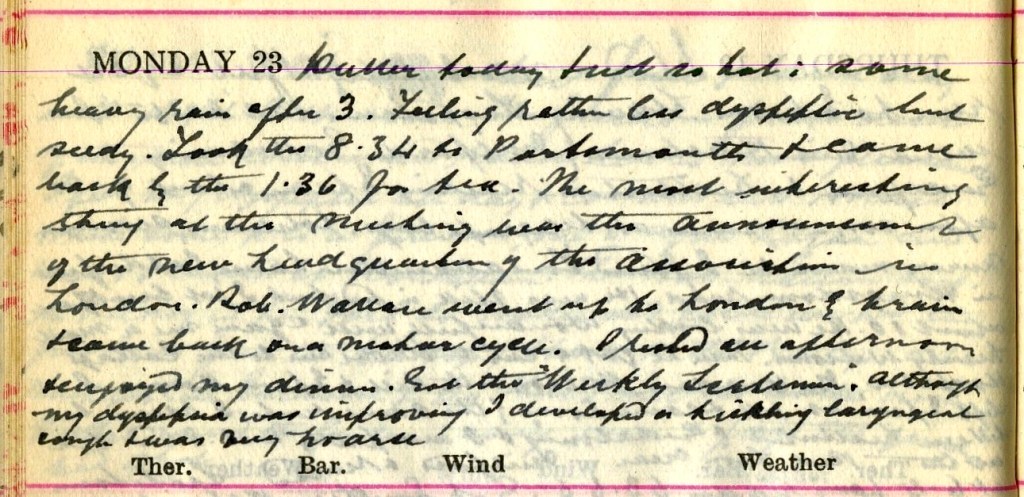 MONDAY 23 Duller today & not so hot: some
heavy rain after 3. Feeling rather less dyspeptic but
seedy. Took the 8.34 to Portsmouth & came
back by the 1.36 for tea. The most interesting
thing at the meeting was the announcement
of the new headquarters of the association in
London. Bob. Wallace went up to London by train
& came back on a motor cycle. I rested all afternoon
& enjoyed my dinner. Got the "Weekly
my dyspepsia was improving I developed a tickling laryngeal
cough & was very hoarse
Ther. Bar. Wind Weather